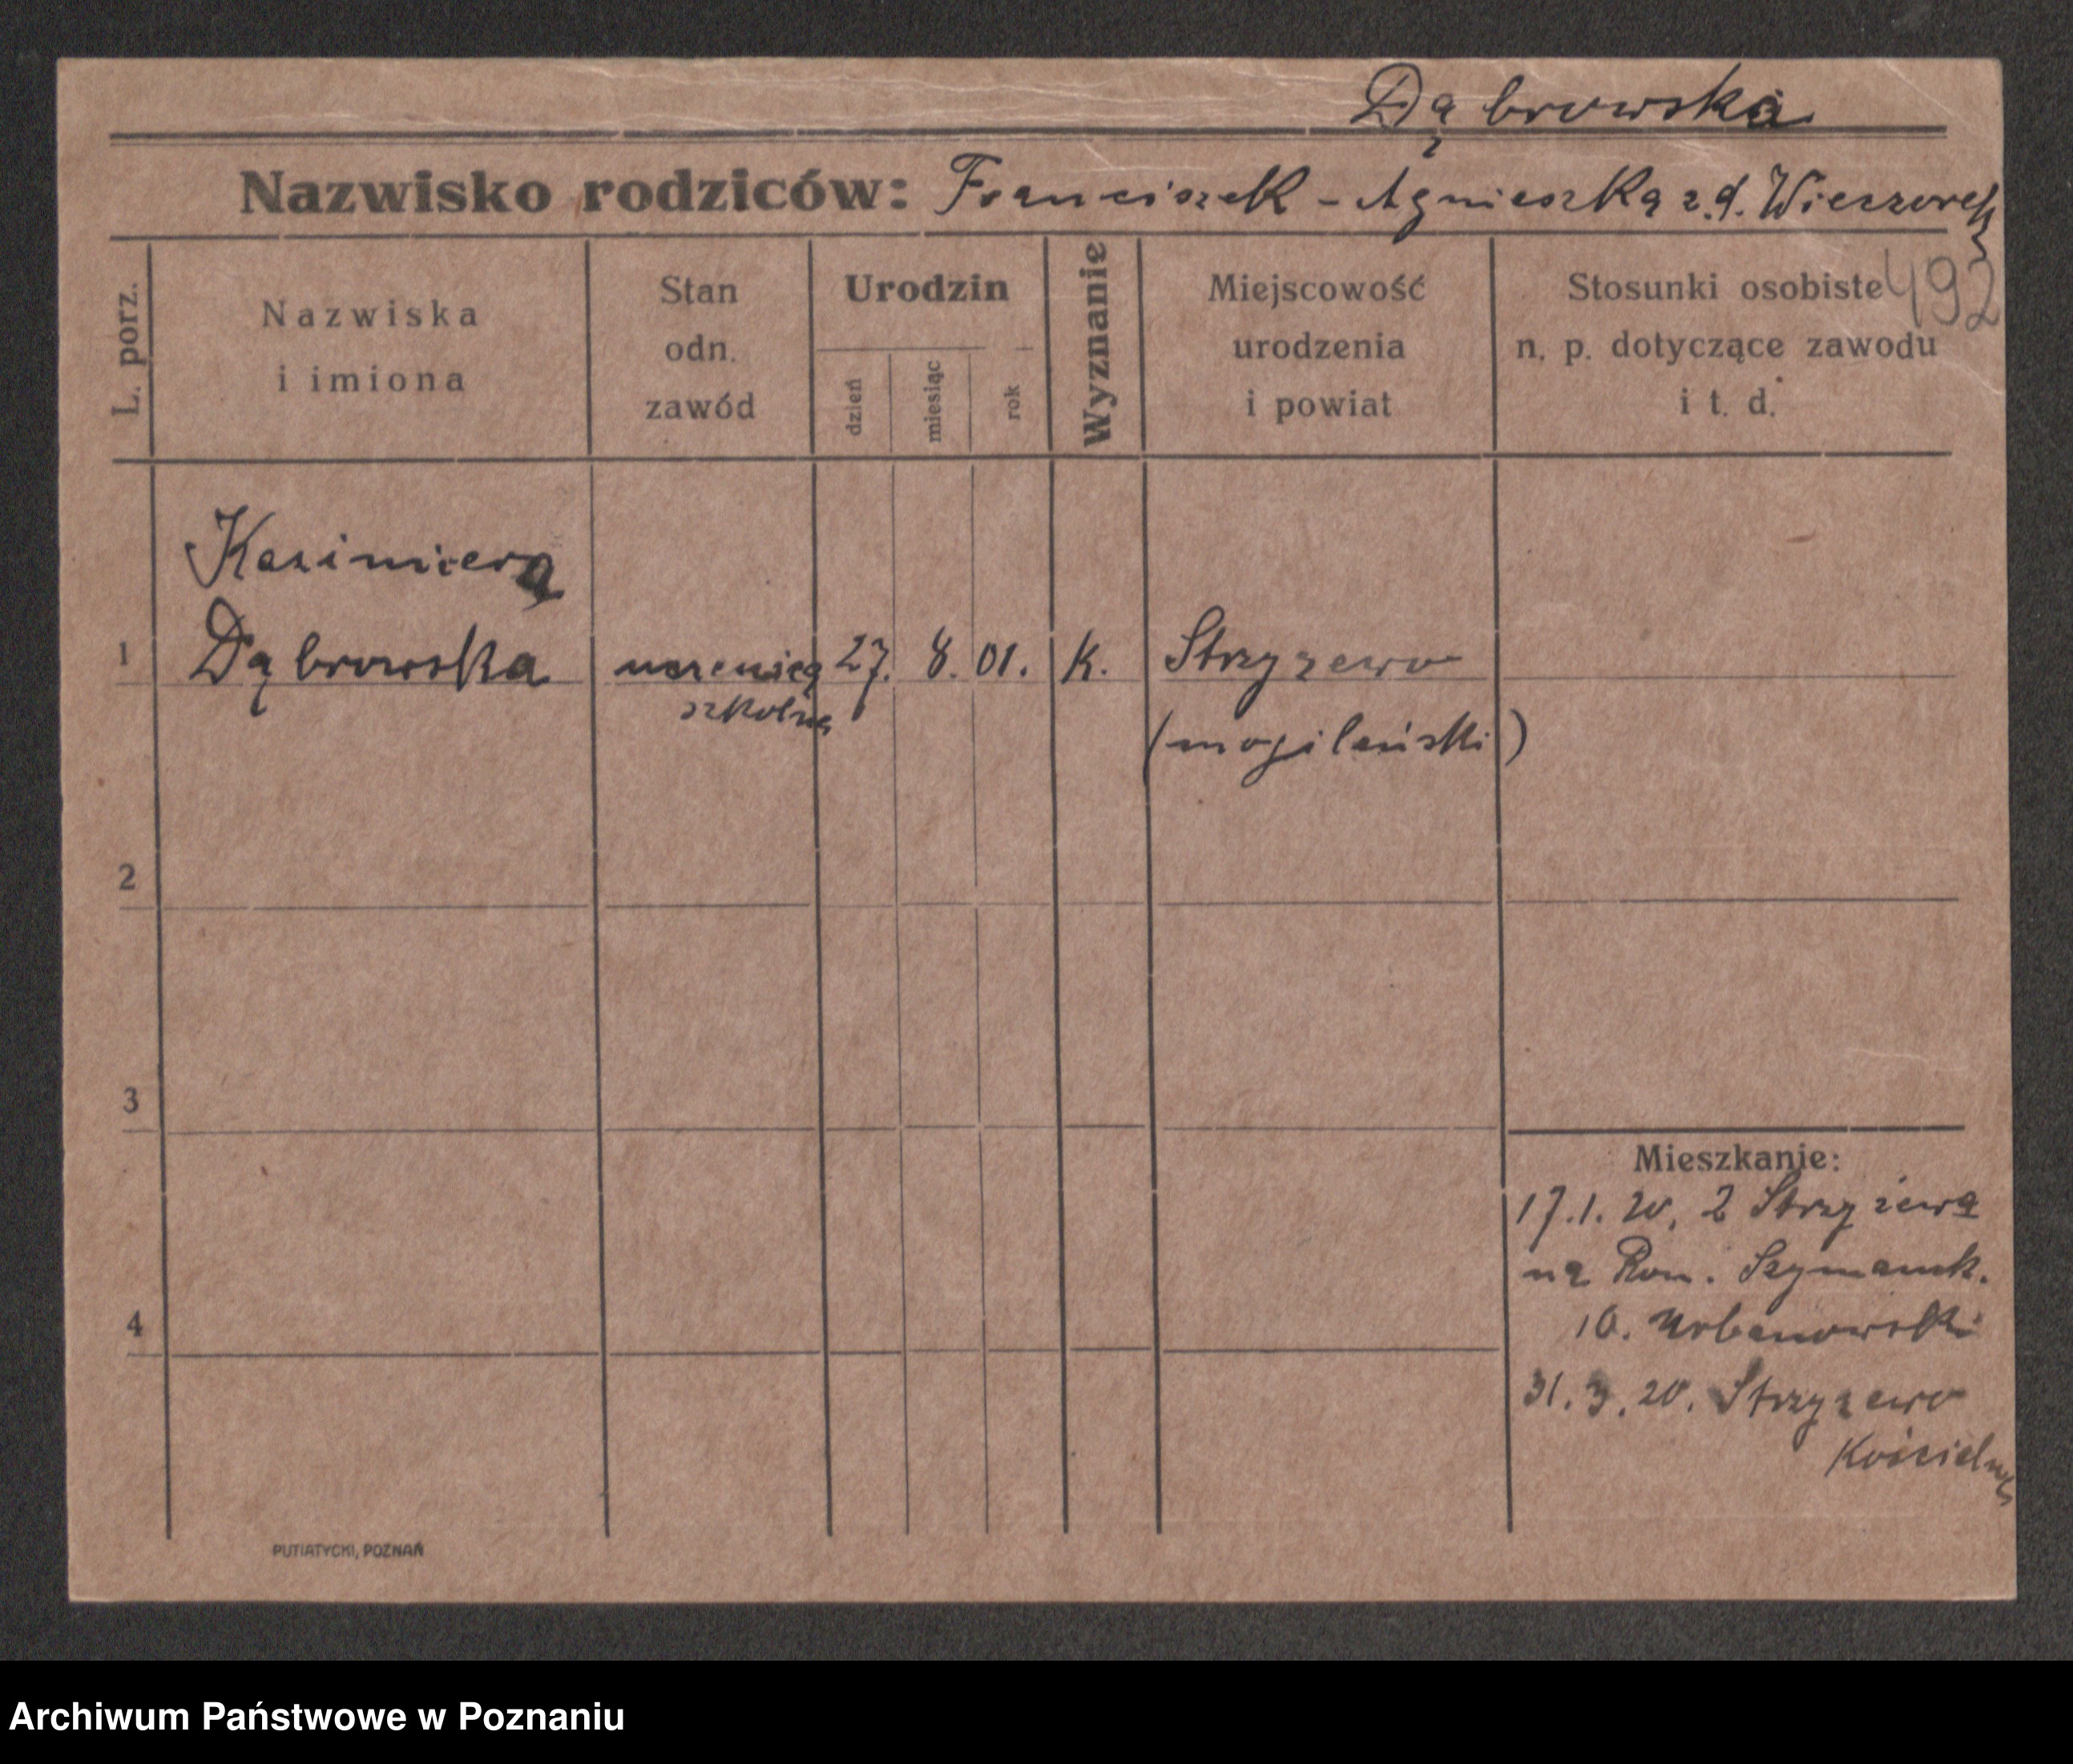 Dąbrowska
Nazwisko rodziców: Franciszek - Agnieszka z.d. Wieczorek
492
L. porz.
Nazwiska
i imiona
Stan
odn.
zawód
Urodzin
dzień
miesiąc
rok
Wyznanie
Miejscowość
urodzenia
i powiat
Stosunki osobiste
n. p. dotyczące zawodu
i t. d.
Kazimiera
1 Dąbrowska uczenica 27. 8. 01. K. Strzyzewo
szkolna
(mogileński)
2
3
Mieszkanie:
17.1.20. z Strzyżewa
na Rom. Szymansk.
4
10. Urbanowski
31.3.20. Strzyzewo
Kościelne
PUTIATYCKI, POZNAŃ
Archiwum Państwowe w Poznaniu